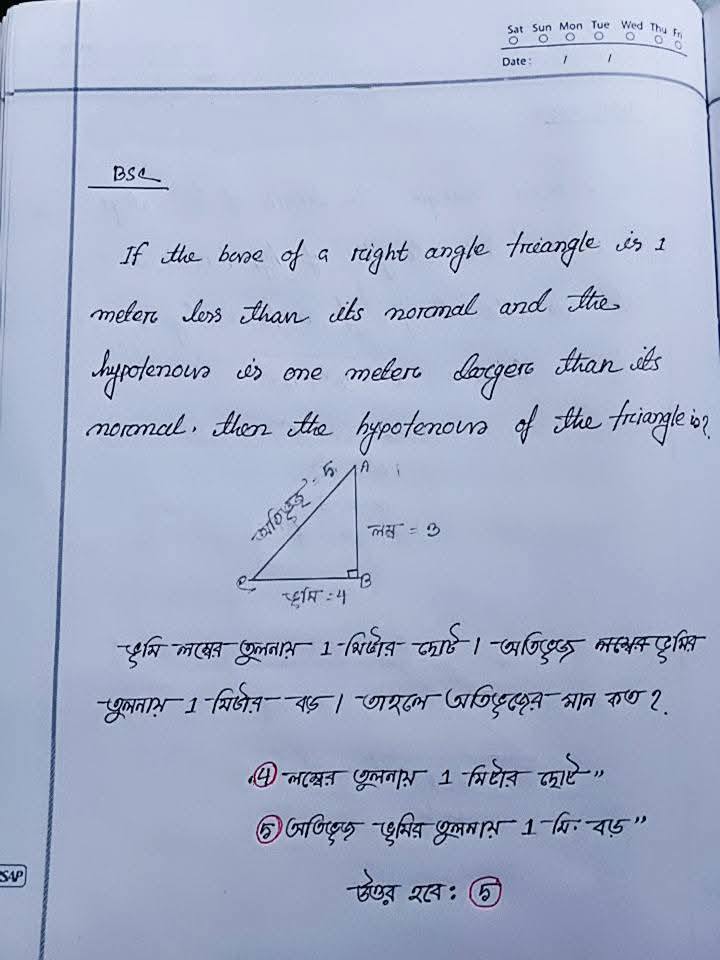 Sat Sun Mon Tue Wed Thu Fri
Date: / /
BSC
If the base of a right angle triangle is 1
meter less than its normal and the
hypotenous is one meter larger than its
normal. then the hypotenous of the triangle is?
A
অতিভুজ = 5
লম্ব = 3
C
B
ভূমি = 4
ভূমি লম্বের তুলনায় 1 মিটার ছোট। অতিভুজ লম্বের ভূমির
তুলনায় 1 মিটার বড়। তাহলে অতিভুজের মান কত?
4 লম্বের তুলনায় 1 মিটার ছোট"
5 অতিভুজ ভূমির তুলনায় 1 মি. বড়"
উত্তর হবে: 5
SAP